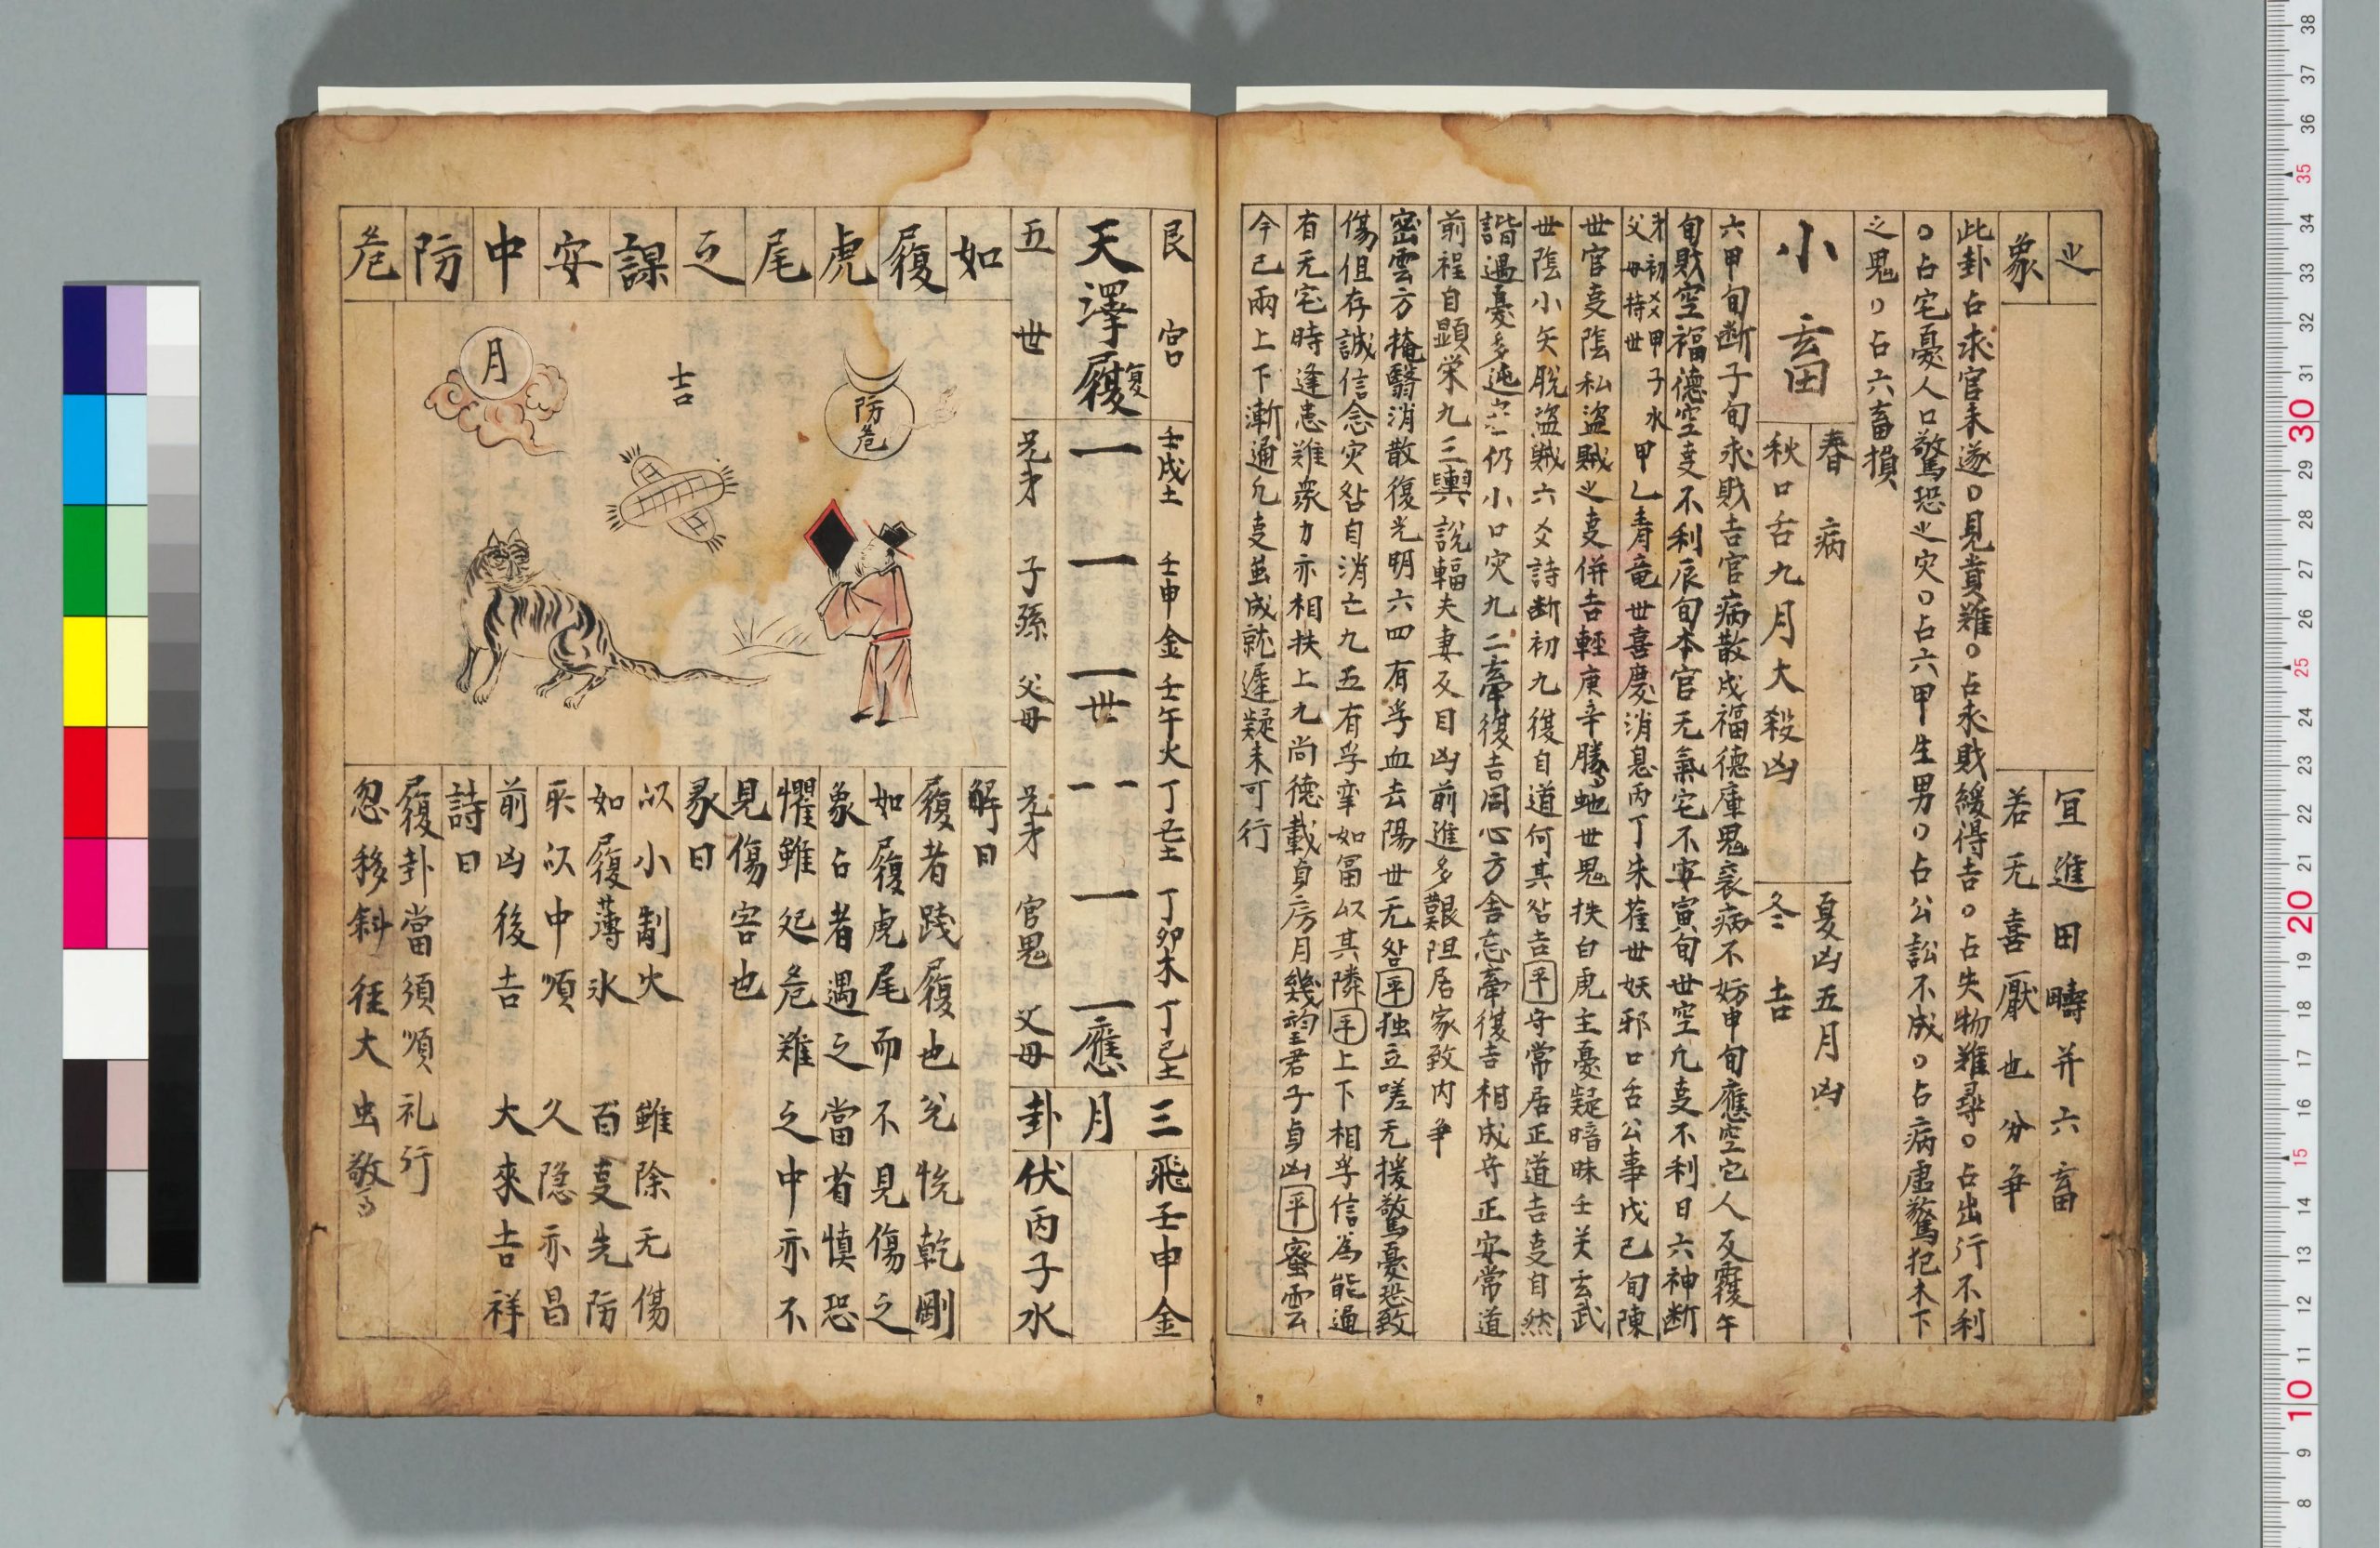 之
象
宜進田疇并六畜
若无喜厭也分争
此卦占求官未遂○見貴難○占求財緩得吉○占失物難尋○占出行不利
○占宅憂人口驚恐之灾○占六甲生男○占公訟不成○占病虚驚犯木下
之鬼○占六畜損
小畜
春 病
秋口舌九月大殺凶
夏凶五月凶
冬 吉
六甲旬断子旬求財吉官病散戌福德庫鬼衰病不妨申旬應空它人反覆午
旬財空福德空叓不利辰旬本官无氣宅不寧寅旬世空凢叓不利日六神断
才初爻甲子水
父母持世
甲乙青竜世喜慶消息丙丁朱雀世妖邪口舌公事戊己旬陳
世官叓隂私盗賊之叓併吉輕庚辛騰虵世鬼扶白虎主憂疑暗昧壬癸玄武
世隂小矢脱盗賊六爻詩断初九復自道何其咎吉平守常居正道吉叓自然
諧遇憂多迍 仍小口灾九二牽復吉同心方舍忘牽復吉相成守正安常道
前程自顯栄九三輿説輻夫妻反目凶前進多艱阻居家致内争
密雲方掩翳消散復光明六四有孚血去陽世无咎平独立嗟无援驚憂恐致
傷但存誠信念灾咎自消亡九五有孚孿如冨以其隣平上下相孚信為能通
有无宅時逢患難衆力亦相扶上九尚德載貞房月幾望君子貞凶平蜜雲
今已兩上下漸通凢叓茲成就遅疑未可行
艮宮
天澤履
復
五世
壬戌土 壬申金 壬午火 丁丑土 丁卯木 丁巳土
世 應
兄才 子孫 父母 兄才 官鬼 父母
三月卦
飛壬申金
伏丙子水
如履虎尾之謀安中防危
防危
吉
月
解曰
履者踐履也兊恱乾剛
如履虎尾而不見傷之
象占者遇之當省慎恐
懼雖处危難之中亦不
見傷害也
彖曰
以小制火 雖除无傷
如履薄氷 百叓先防
釆以中順 久隐亦昌
前凶後吉 大來吉祥
詩曰
履卦當須順礼行
忽移斜徃大虫驚